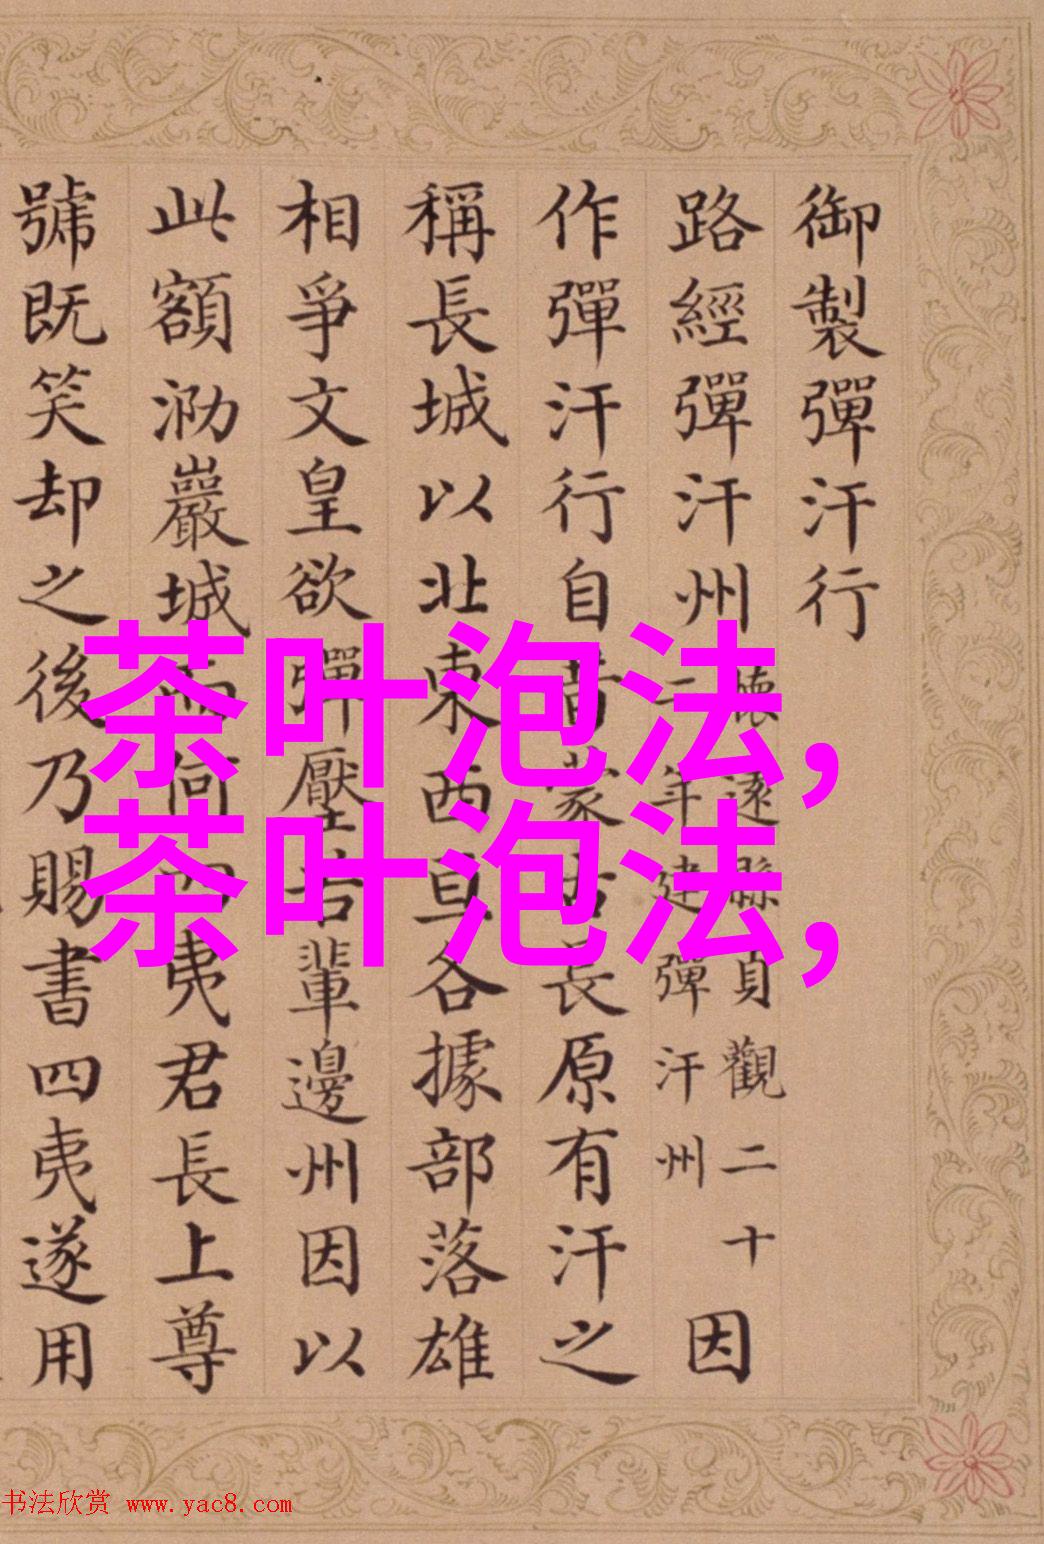 御製彈汗行
路經彈汗州
懷遠縣貞觀二十
二年建彈汗州
因
作彈汗行自昔蒙古長原有汗之
稱長城以北東西亘各據部落雄
相爭文皇欲彈壓輩邊州因以
此額泐巖城而何夷君長上尊
號既笑却之後乃賜書四夷遂用
茶叶泡法,
茶叶泡法,
书法欣赏 www.yac8.com